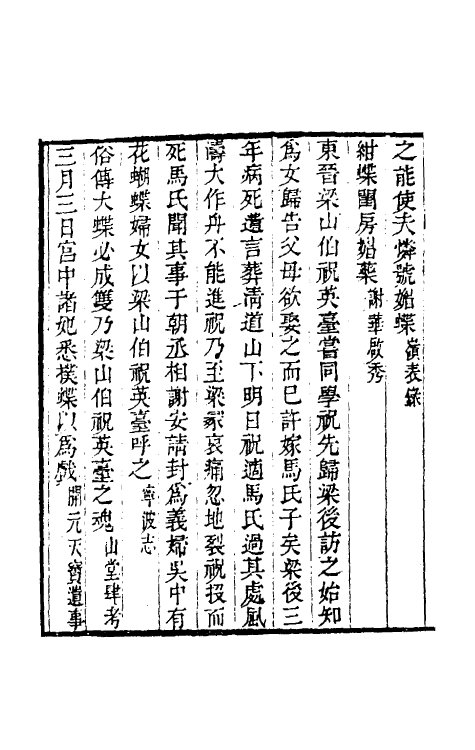 之能使夫憐號媚蝶嶺表錄
紺蝶閨房媚藥謝華啟秀
東晉梁山伯祝英臺嘗同學祝先歸梁後訪之始知
爲女歸告父母欲娶之而已許嫁馬氏子矣梁後三
年病死遺言葬淸道山下明日祝適馬氏過其處風
濤大作舟不能進祝乃至梁冢哀痛忽地裂祝投而
死馬氏聞其事于朝丞相謝安請封爲義婦吳中有
花蝴蝶婦女以梁山伯祝英臺呼之寧波志
俗傳大蝶必成雙乃梁山伯祝英臺之魂山堂肆考
三月三日宮中諸妃悉撲蝶以爲戲開元天寶遺事